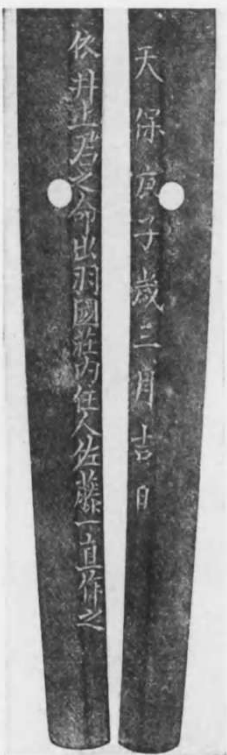 天保庚子歳三月吉日
依井上君之命出羽國莊内住人佐藤一直作之